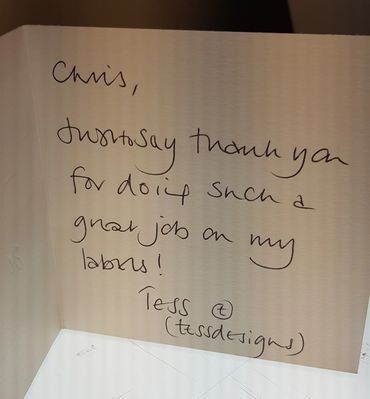 Chris,
Just to say thank you
for doing such a
great job on my
labels!
Tess t
(tessdesigns)